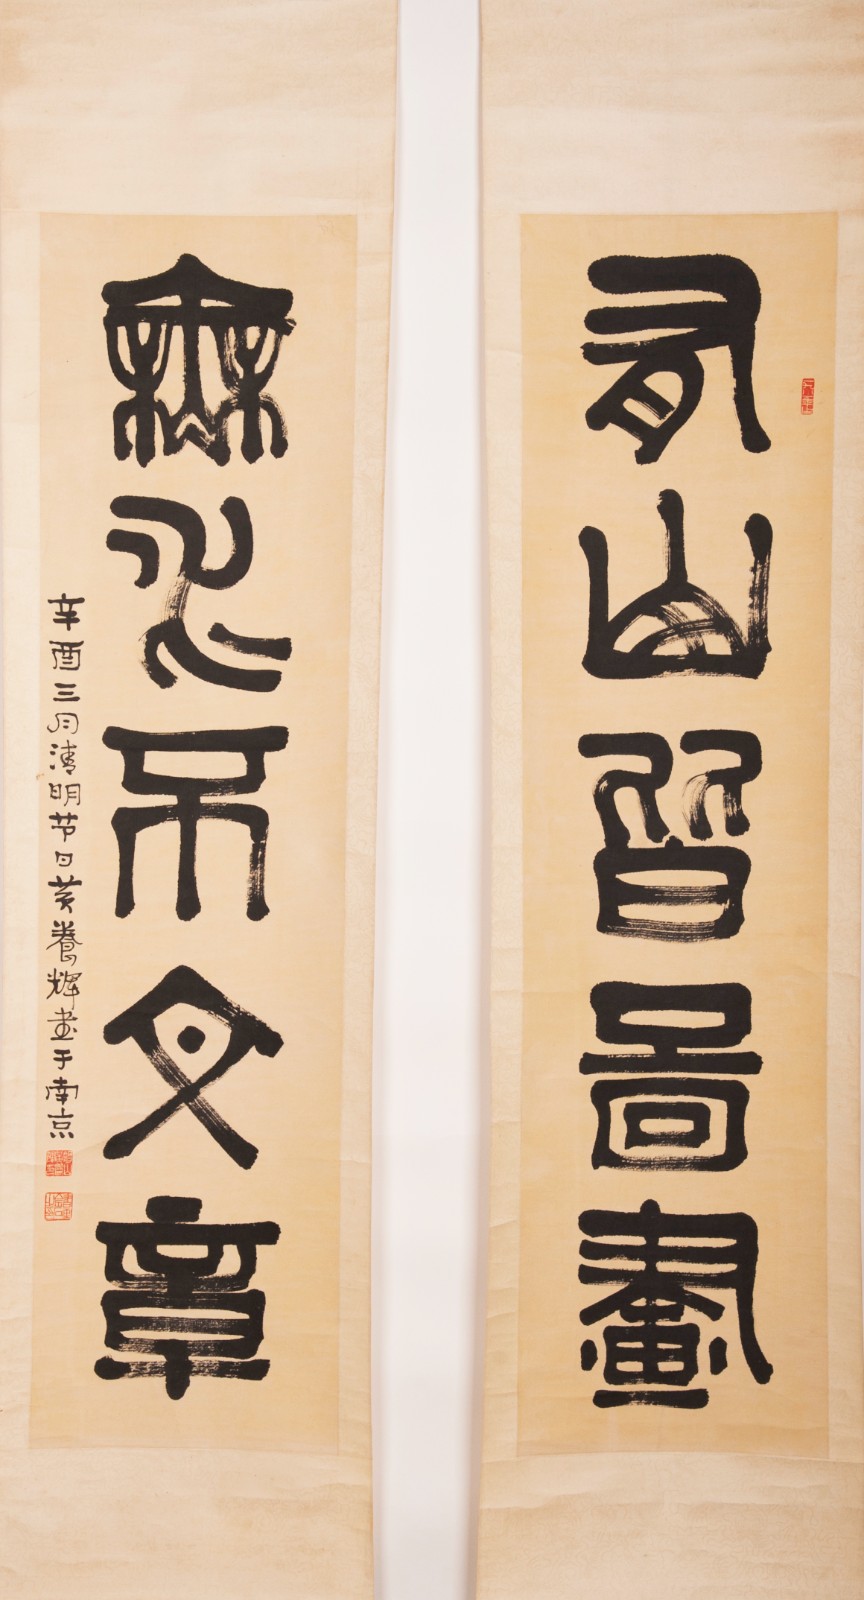 有山皆圖畫
無水不文章
辛酉三月清明节日黄養辉書于南京